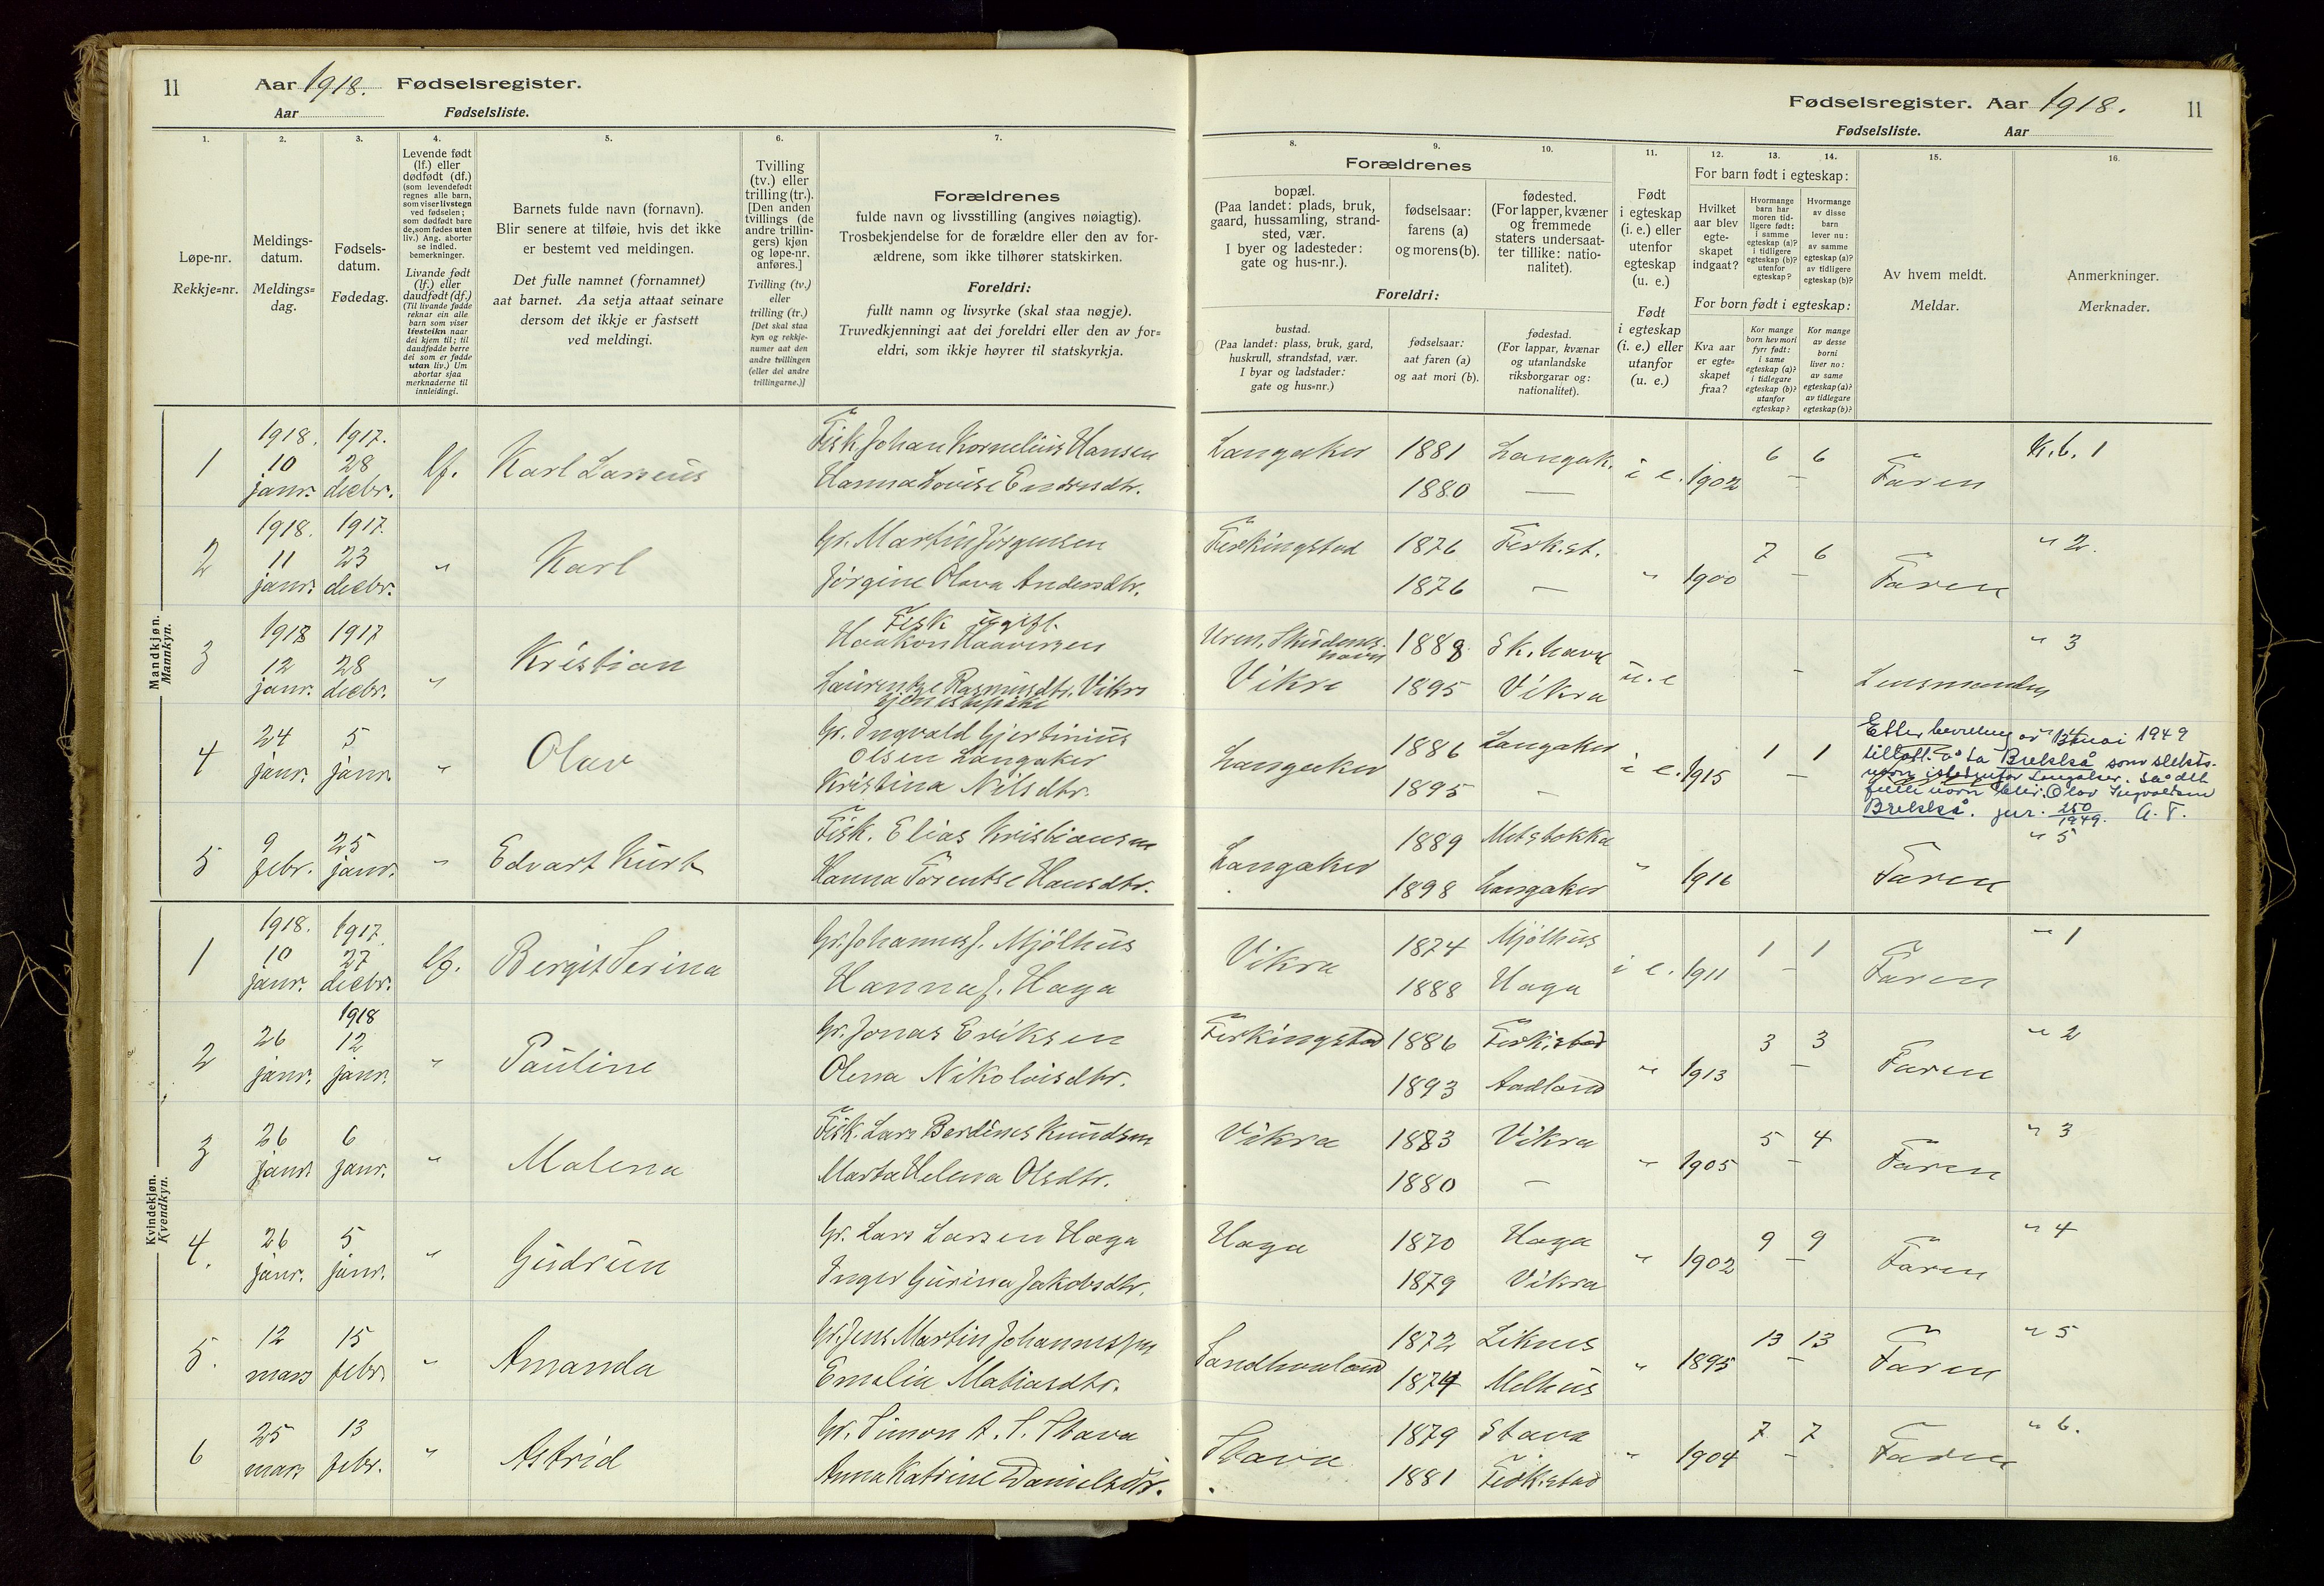 11 Aar 1918. Fødselsregister.
Aar Fødselsliste.
1. 2. 3. 4. 5. 6. 7.
Løpe-nr.
Rekkje=nr.
Meldings-
datum.
Meldings=
dag.
Fødsels-
datum.
Fødedag.
Levende født
(lf.) eller
dødfødt (df.)
(som levendefødt
regnes alle barn,
som viser livstegn
ved fødselen;
som dødfødt bare
de, som fødes uten
liv.) Ang. aborter
se indled.
bemerkninger.
Livande født
(lf.) eller
daudfødt (df.)
(Til livande fødde
reknar ein alle
barn som viser
livsteikn naar
dei kjem til; til
daudfødde berre
dei som er fødde
utan liv.) Um
abortar sjaa
merknaderne til
innleidingi.
Barnets fulde navn (fornavn).
Blir senere at tilføie, hvis det ikke
er bestemt ved meldingen.
Det fulle namnet (fornamnet)
aat barnet. Aa setja attaat seinare
dersom det ikkje er fastsett
ved meldingi.
Tvilling
(tv.) eller
trilling (tr.).
[Den anden
tvillings (de
andre trillin-
gers) kjøn
og løpe-nr.
anføres.]
Tvilling (tv.)
eller
trilling (tr.)
[Det skal staa
kyn og rekkje-
numer aat den
andre tvillingen
(eller dei andre
trillingarne.)]
Forældrenes
fulde navn og livsstilling (angives nøiagtig).
Trosbekjendelse for de forældre eller den av for-
ældrene, som ikke tilhører statskirken.
Foreldri:
fullt namn og livsyrke (skal staa nøgje).
Truvedkjenningi aat dei foreldri eller den av for=
eldri, som ikkje høyrer til statskyrkja.
Mandkjøn.
Mannkyn.
1 1918. 10 janr. 1917. 28 decbr. lf. Karl Larseus Fisk. Johan Kornelius Hansen
Hanna Lovise Endresdtr.
2 1918. 11 janr. 1917. 23 decbr. " Karl Gr. Martin Jørgensen
Jørgine Olava Andersdtr.
3 1918 12 janr. 1917 28 decbr. " Kristian Fisk ugift.
Haakon Haaversen
Laurentze Rasmusdtr. Vikra
tjenestepike
4 24 janr. 5 janr. " Olav Gr. Ingvald Gjertinius
Olsen Langaker
Kristina Nilsdtr.
5 9 febr. 25 janr. " Edvart Kurt Fisk. Elias Kristiansen
Hanna Torentse Hansdtr.
Kvindekjøn.
Kvendkyn.
1 1918. 10 janr. 1917. 27 decbr. lf. Bergit Serina Gr. Johannes J. Mjølhus
Hanna J. Haga
2 26 janr. 1918 12 janr. " Pauline Gr. Jonas Eriksen
Olena Nikolaisdtr.
3 26 janr. 6 janr. " Malena Fisk. Lars Berdines Knudsen
Marta Helena Olsdtr.
4. 26 janr. 5 janr. " Gudrun Gr. Lars Larsen Haga
Inger Gurina Jakobsdtr.
5. 12 mars 15 febr. " Amanda Gr. Jens Martin Johannessen
Emalia Matiasdtr.
6 25 mars 13 febr. " Astrid Gr. Simon A. S. Stava
Anna Katrine Danielsdtr.
Fødselsregister. Aar 1918. 11
Fødselsliste. Aar
8. 9. 10. 11. 12. 13. 14. 15. 16.
Forældrenes
bopæl.
(Paa landet: plads, bruk,
gaard, hussamling, strand-
sted, vær.
I byer og ladesteder:
gate og hus-nr.).
fødselsaar:
farens (a)
og morens (b).
fødested.
(For lapper, kvæner
og fremmede
staters undersaat-
ter tillike: natio-
nalitet).
Foreldri:
bustad.
(Paa landet: plass, bruk, gard,
huskrull, strandstad, vær.
I byar og ladstader:
gate og hus=nr.)
fødselsaar:
aat faren (a)
og aat mori (b).
fødestad.
(For lappar, kvænar
og utanlandske
riksborgarar og:
nationalitet).
Født
i egteskap
(i. e.) eller
utenfor
egteskap
(u. e.)
Født
i egteskap
(i. e.) eller
utanfor
(u. e.)
For barn født i egteskap:
Hvilket
aar blev
egte-
skapet
indgaat?
Hvormange
barn har
moren tid-
ligere født:
i samme
egteskap (a)?
i tidligere
egteskap (b)?
utenfor
egteskap?
Hvormange
av disse
barn
lever nu:
av samme
egteskap (a)?
av tidligere
egteskap (b)?
For born født i egteskap:
Kva aar
er egte=
skapet
fraa?
Kor mange
born hev mori
fyrr født:
i same
egteskap (a)?
i tidlegare
egteskap (b)?
utanfor
egteskap?
Kor mange
av desse
borni
liver no:
av same
egteskap (a)?
av tidlegare
egteskap (b)?
Av hvem meldt.
Meldar.
Anmerkninger.
Merknader.
Langaker 1881 1880 Langak. — i e. 1902 6 6 — Faren K. b. 1
Ferkingstad 1876 1876 Ferk.st. — " 1900 7 6 — Faren " 2.
Uren, Skudenes-
havn 1888 Sk.havn u. e — Lensmanden " 3
Vikra 1895 Vikra
Langaker 1886 1895 Langaker - i e. 1915 1 1 —
1949
tillatt å ta Brekkå som slekts-
navn istedenfor Langaker. så det
fulle navn blir: Olav Ingvaldsen
Brekkå. jnr. 250/1949. A. T.
Langaker 1889 1898 Metstokka Langaker " 1916 Faren " 5
Vikra 1874 1888 Mjølhus Haga i e. 1911 1 1 — Faren " 1
Ferkingstad 1886 1893 Ferkistad Aadland " 1913 3 3 — Faren " 2
Vikra 1883 1880 Vikra — " 1905 5 4 — Faren " 3
Haga 1870 1879 Haga Vikra " 1902 9 9 — Faren " 4
Sandhouland 1872 1874 Liknes Melhus " 1895 13 13 — Faren " 5
Stava 1879 1881 Stava Ferk.stad " 1904 7 7 — Faren " 6.